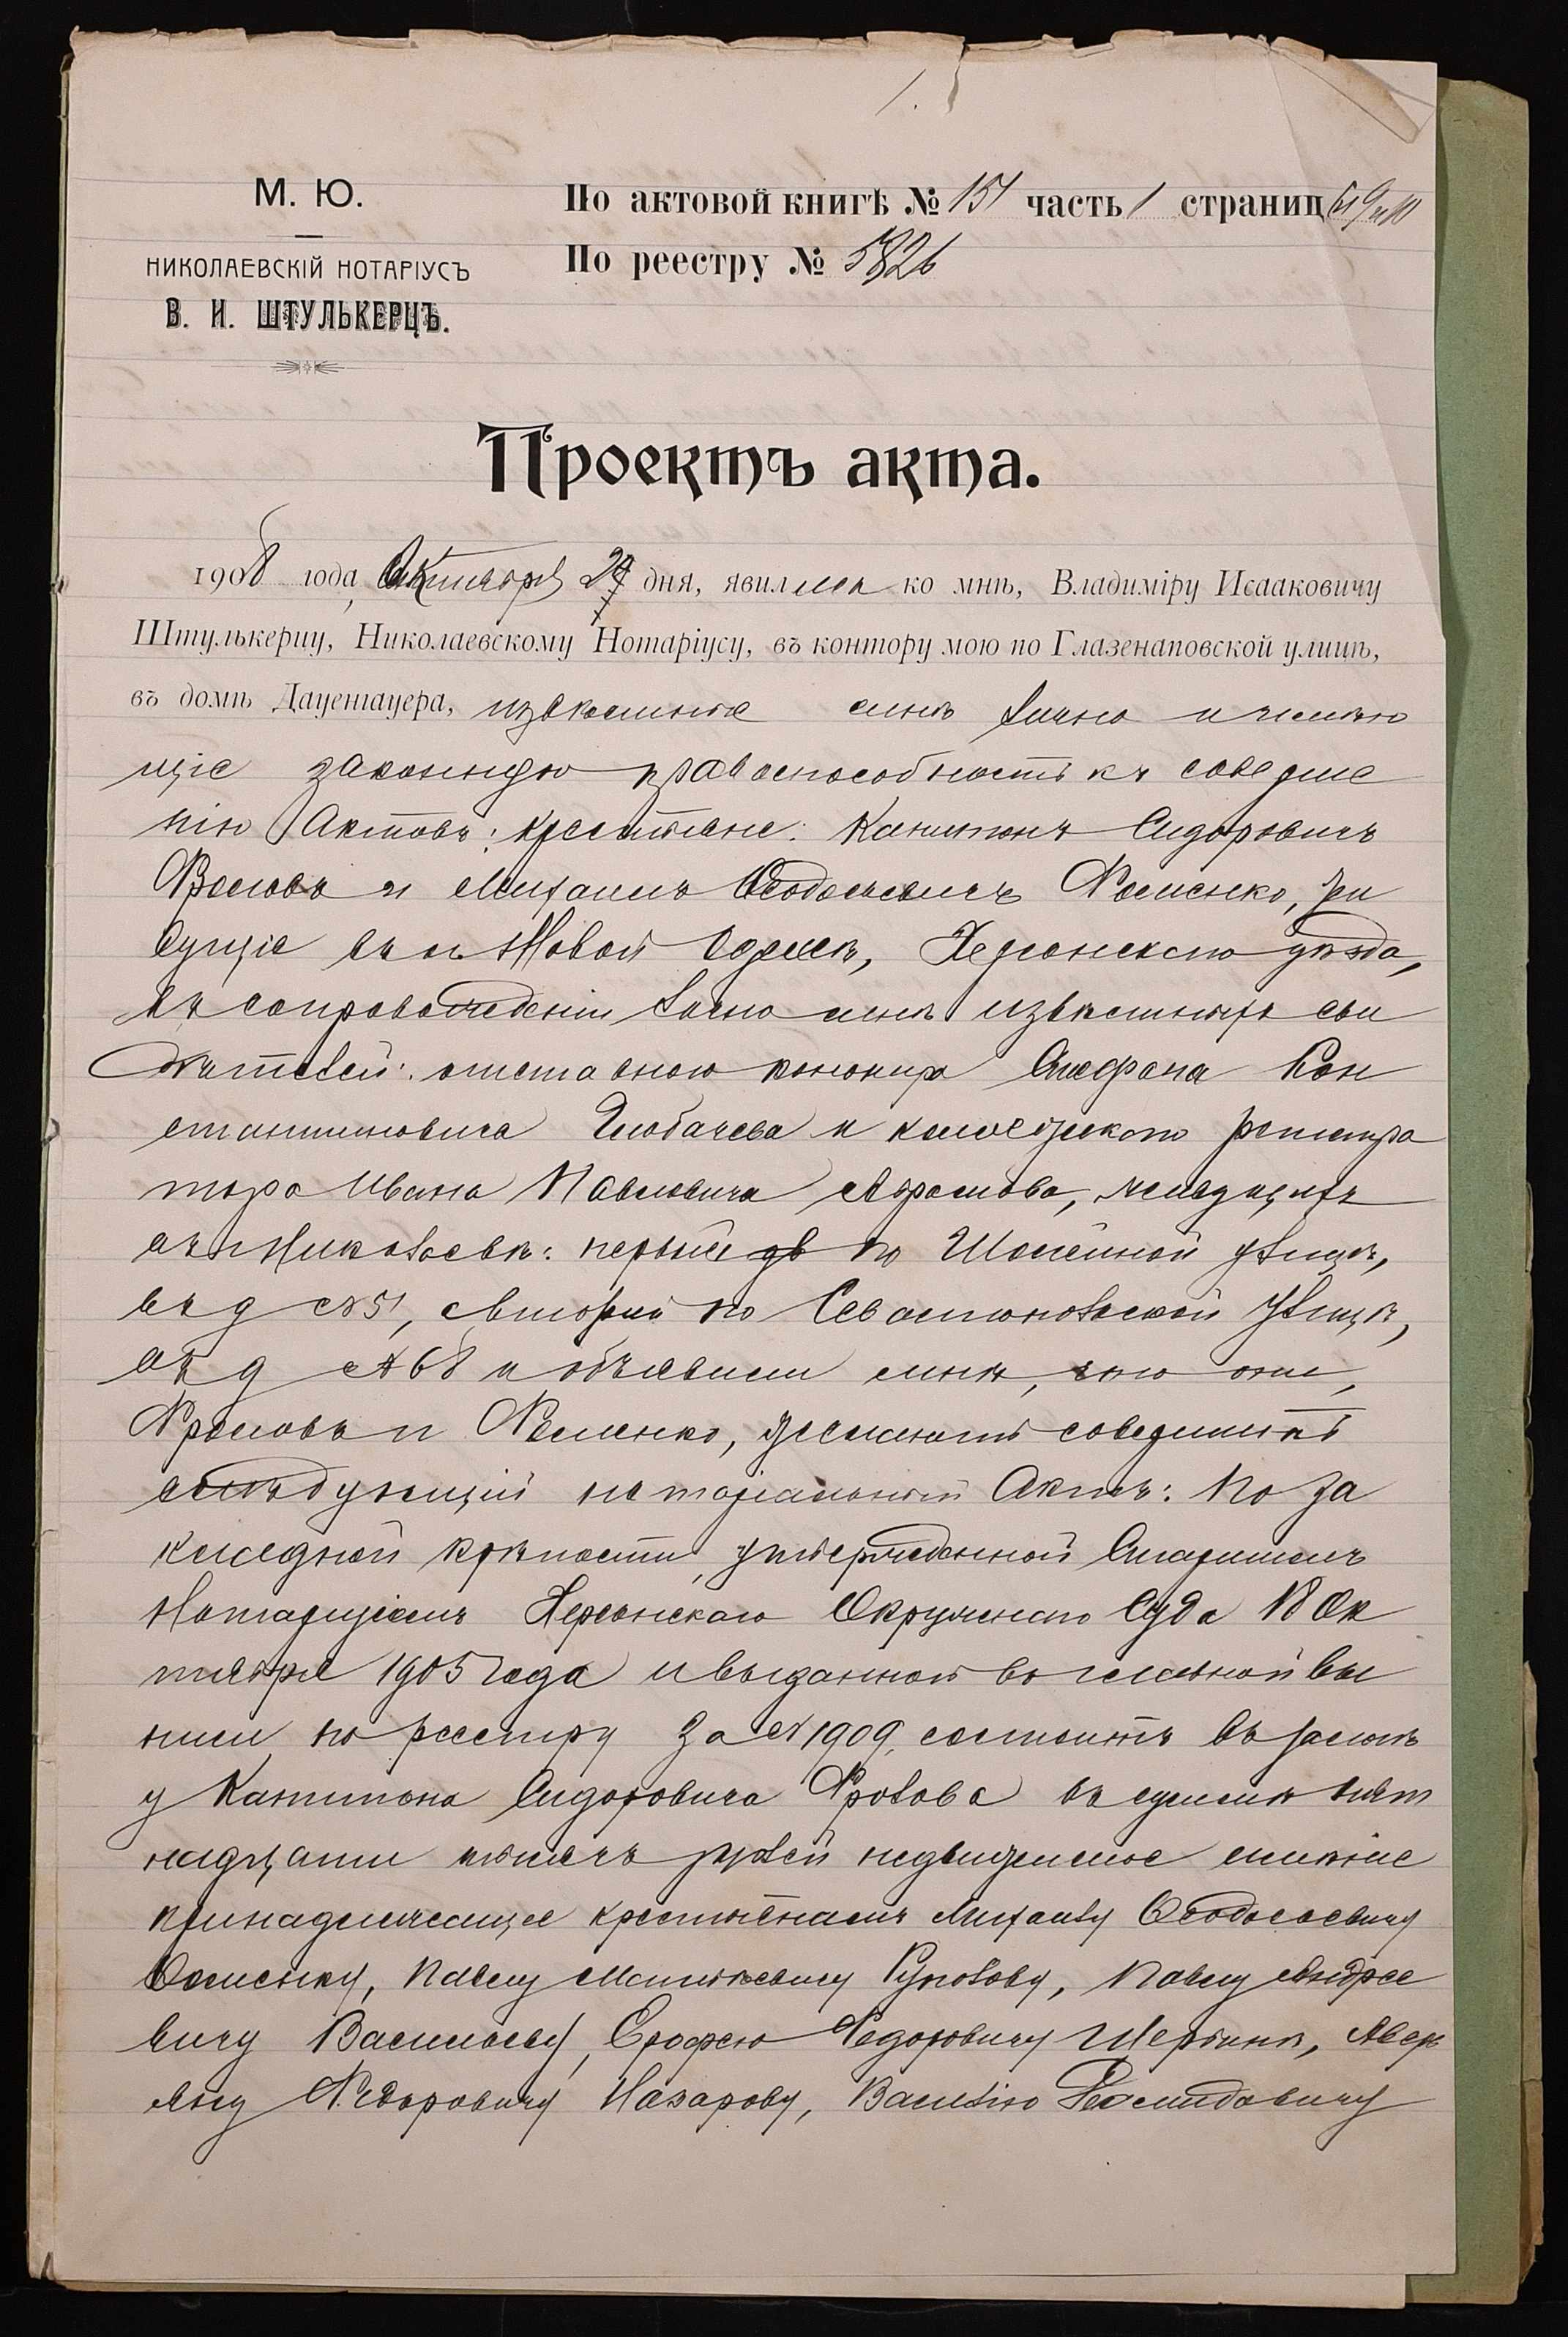 М. Ю.
НИКОЛАЕВСКІЙ НОТАРІУСЪ
В. И. ШТУЛЬКЕРЦЪ.
По актовой книгѣ № 151 часть 1 страниц
По реестру № 5826
Проектъ акта.
1908 года, Октября дня, явились ко мнѣ, Владиміру Исааковичу
Штулькерцу, Николаевскому Нотаріусу, въ контору мою по Глазенаповской улицѣ,
въ домѣ Дауентауера, извѣстные мнѣ лично и имѣю
щіе законную правоспособность къ соверше
нію Актовъ: крестьяне: Капитонъ Сидоровичъ
Фроловъ и Михаилъ Ѳеодосьевичъ Фоменко, жи
вущіе въ с. Новой Одессѣ, Херсонскаго уѣзда,
въ сопровожденіи лично мнѣ извѣстныхъ сви
дѣтелей: отставного юнкера Стефана Кон
стантиновича и коллежскаго регистра
тора Ивана Павловича Абрамова, живущихъ
въ г. Николаевѣ: первый по улицѣ,
въ д № 51, второй по Севастопольской улицѣ,
въ д № 68 и объявили мнѣ, что они,
Фроловъ и Фоменко, желаютъ совершить
слѣдующій нотаріальный Актъ: По за
кладной крѣпости, утвержденной Старшимъ
Нотаріусомъ Херсонскаго Окружнаго Суда 18 Ок
тября 1905 года и выданной въ главной вы
писи по реестру за № 1909, состоитъ въ залогѣ
у Капитона Сидоровича Фролова въ суммѣ пят
надцати тысячъ рублей недвижимое имѣніе
принадлежащее крестьянамъ Михаилу Ѳеодосьевичу
Фоменку, Павлу Матвѣевичу Павлу Андрее
вичу Васильеву, Ерофею Федоровичу Авер
яну Федоровичу Назарову, Василію